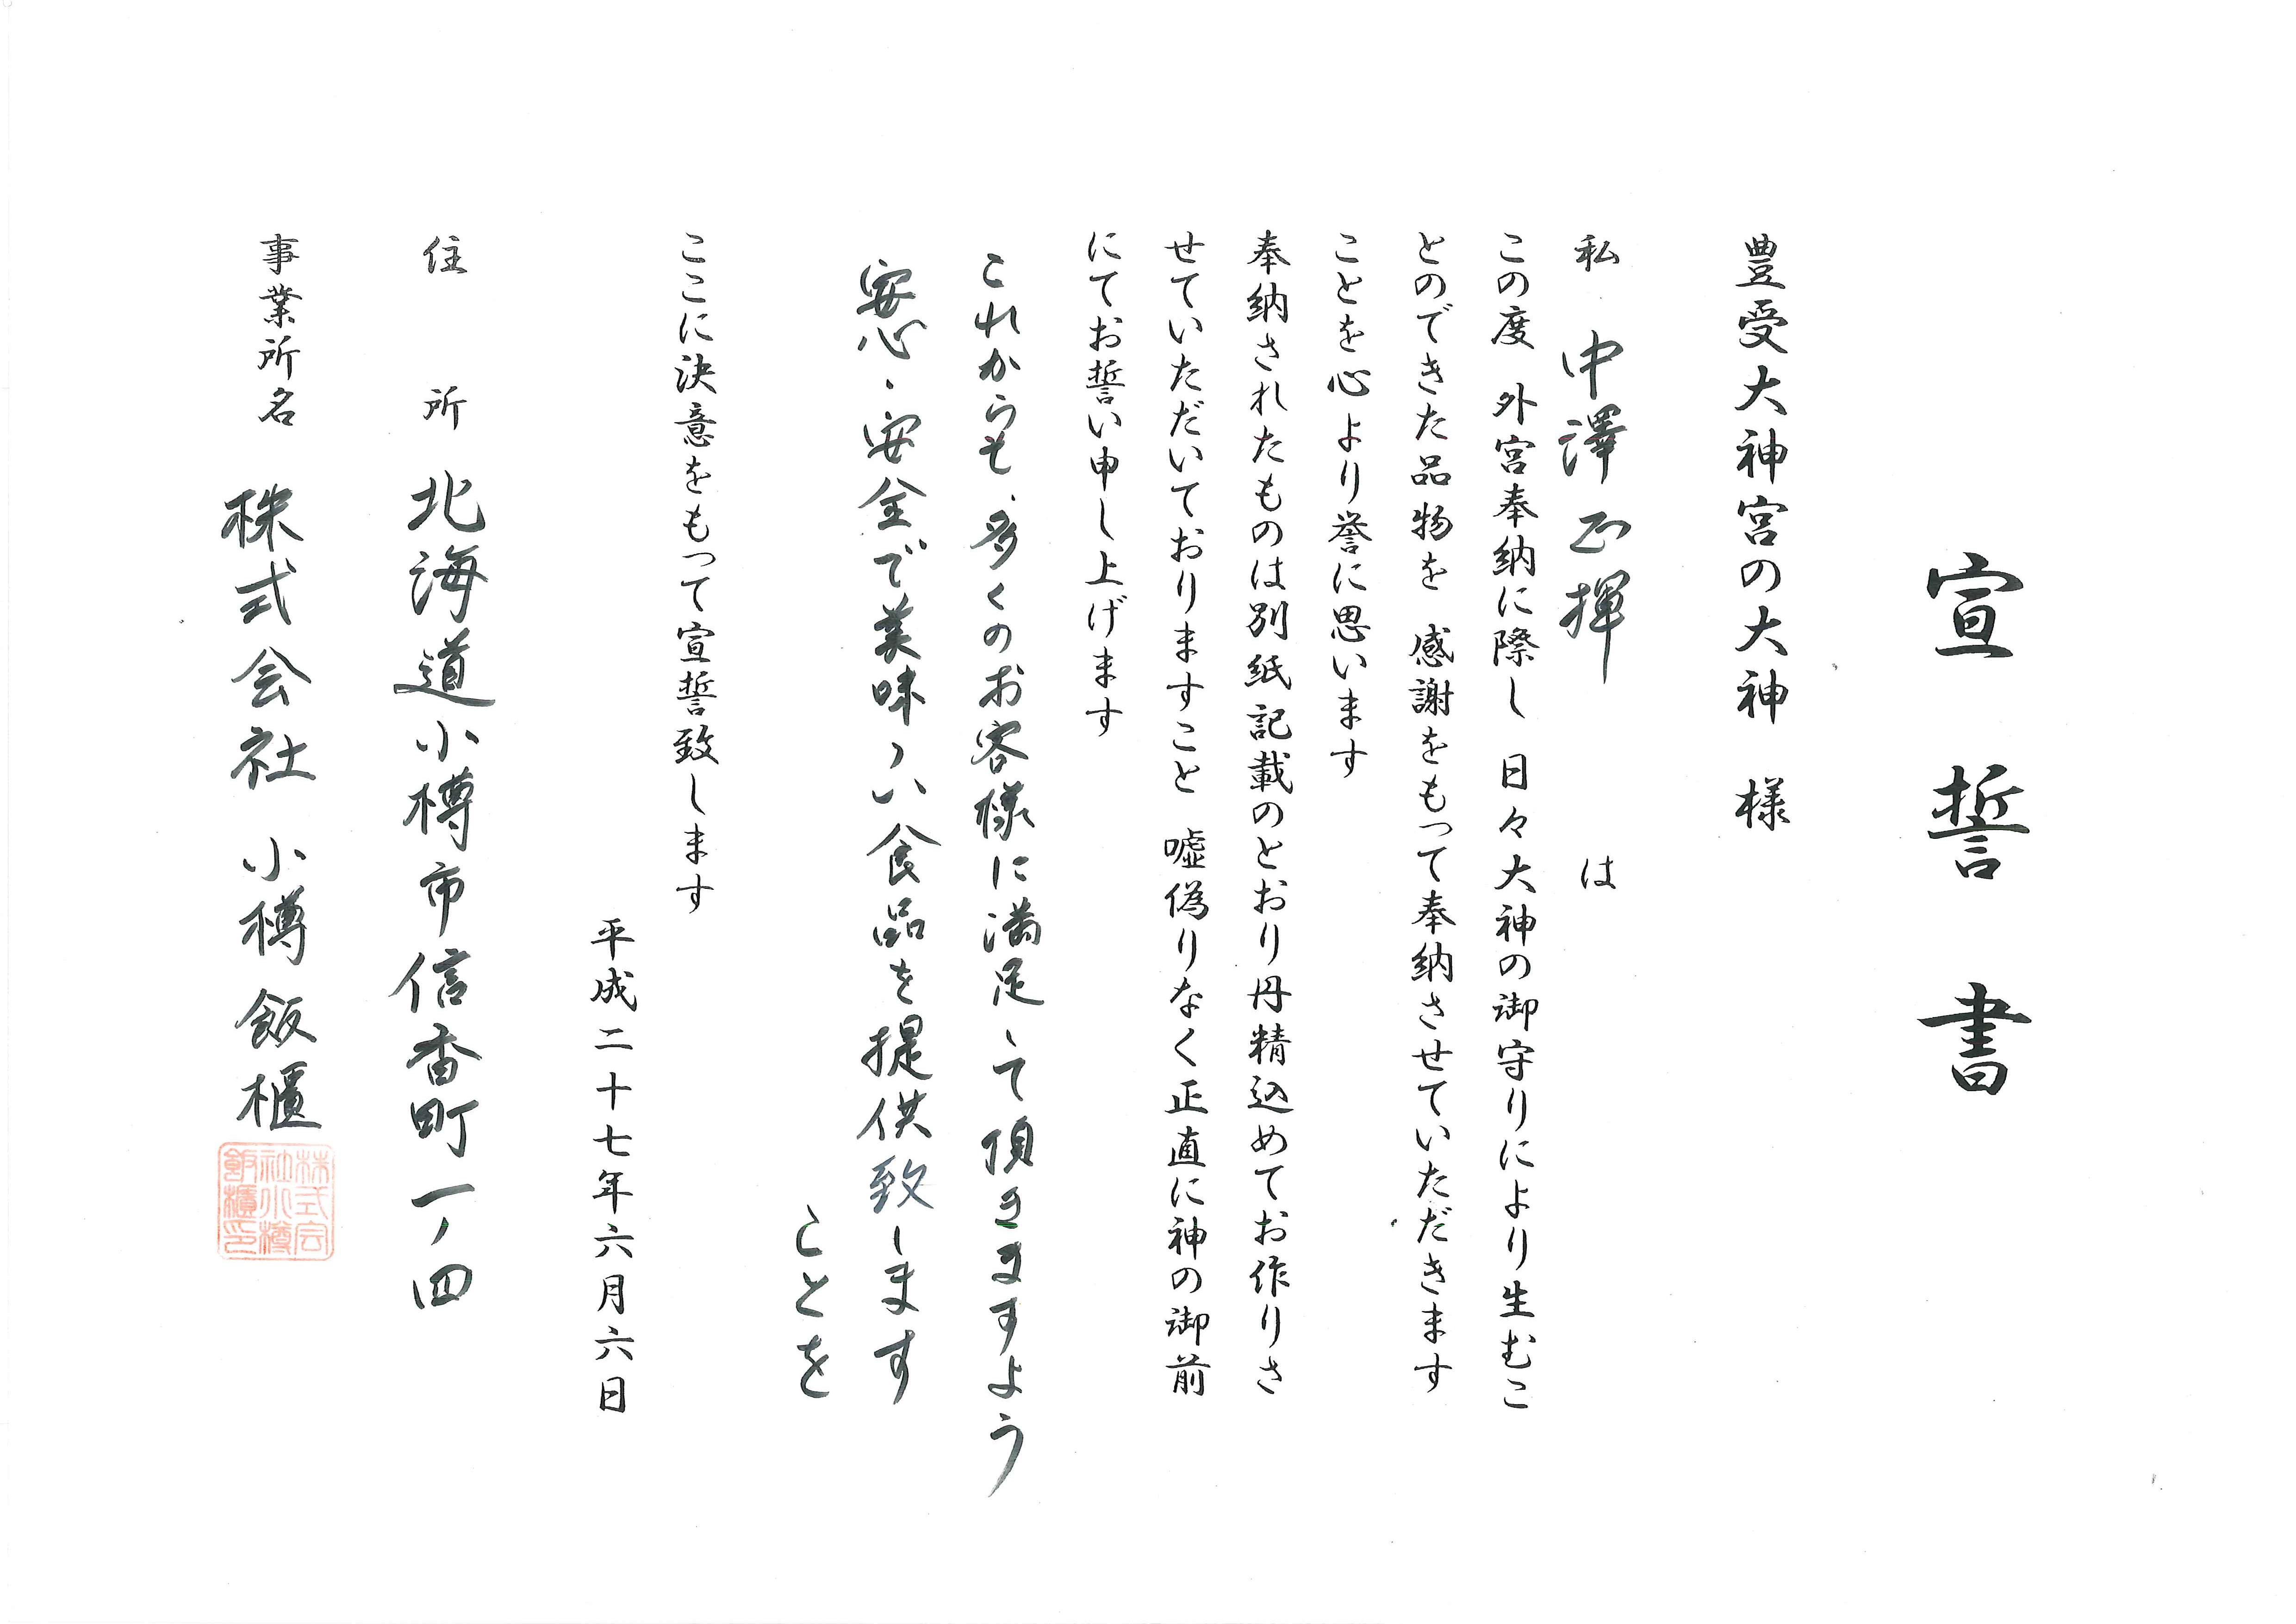 宣誓書
豊受大神宮の大神 様
私 中澤正揮 は
この度 外宮奉納に際し 日々大神の御守りにより生むこ
とのできた品物を 感謝をもって奉納させていただきます
ことを心より誉に思います
奉納されたものは別紙記載のとおり丹精込めてお作りさ
せていただいておりますこと 嘘偽りなく正直に神の御前
にてお誓い申し上げます
これからも、多くのお客様に満足して頂きますよう
安心、安全で美味しい食品を提供致します
ことを
ここに決意をもって宣誓致します
平成二十七年六月六日
住所 北海道小樽市信香町一ノ四
事業所名 株式会社 小樽飯櫃
株式会社小樽飯櫃印